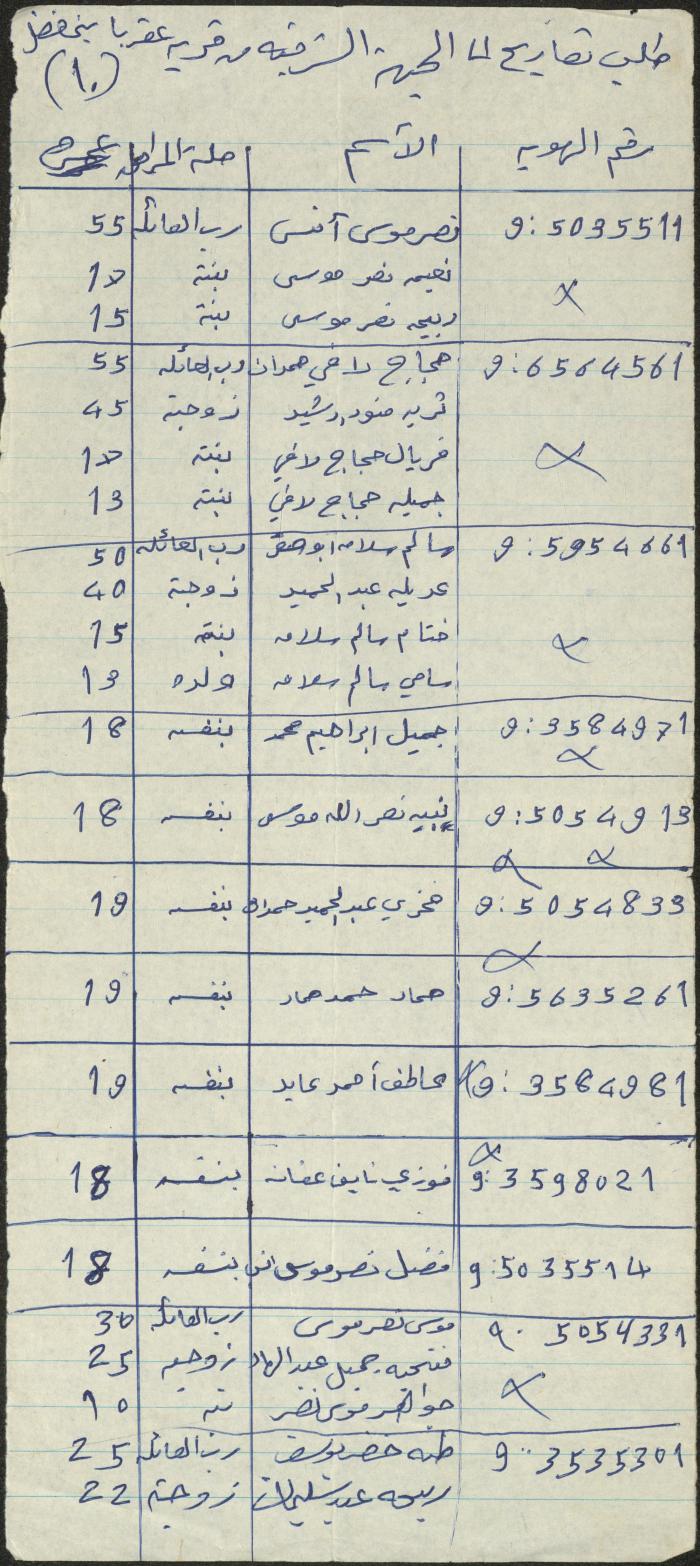 طلب تصاريح لنا الجهة الشرقيه من قريه عقربا
(10)
رقم الهويه الأسم صلة عمره
9:5035511 نصر موسى أنس رب العائله 55
نعيمه نصر موسى بنته
ربيحه نصر موسى بنة 15
9:6564561 حجاج لافي حمدان رب العائله 55
ثريه رشيد زوجبة 45
فريال حجاج لافي بنته
جميله حجاج لافي بنته 13
9:5954661 سالم سلامه ابو صقر رب العائله 50
عديله عبد الحميد زوجبة 40
ختام سالم سلامه بنته 15
سامي سالم سلامه ولده 13
9:3584971 جميل ابراهيم محمد بنفسه 18
9:5054913 نبيه نصر الله موسى بنفسه 18
9:5054833 فخري عبد الحميد حمدان بنفسه 19
9:5635261 حماد حمد حماد بنفسه 19
9:3584981 عاطف أحمد عايد بنفسه 19
9:3598021 فوزي نايف عفانه بنفسه 18
9:5035514 فضل نصر موسى انس بنفسه 18
9: 5054331 موسى نصر موسى رب العائله 30
فتحيه جميل عبد الهاد زوجبه 25
جواهر موسى نصر 10
9: 3535301 طه خضر يوسف رب العائله 25
ربيحه عبد سليمان زوجبة 22